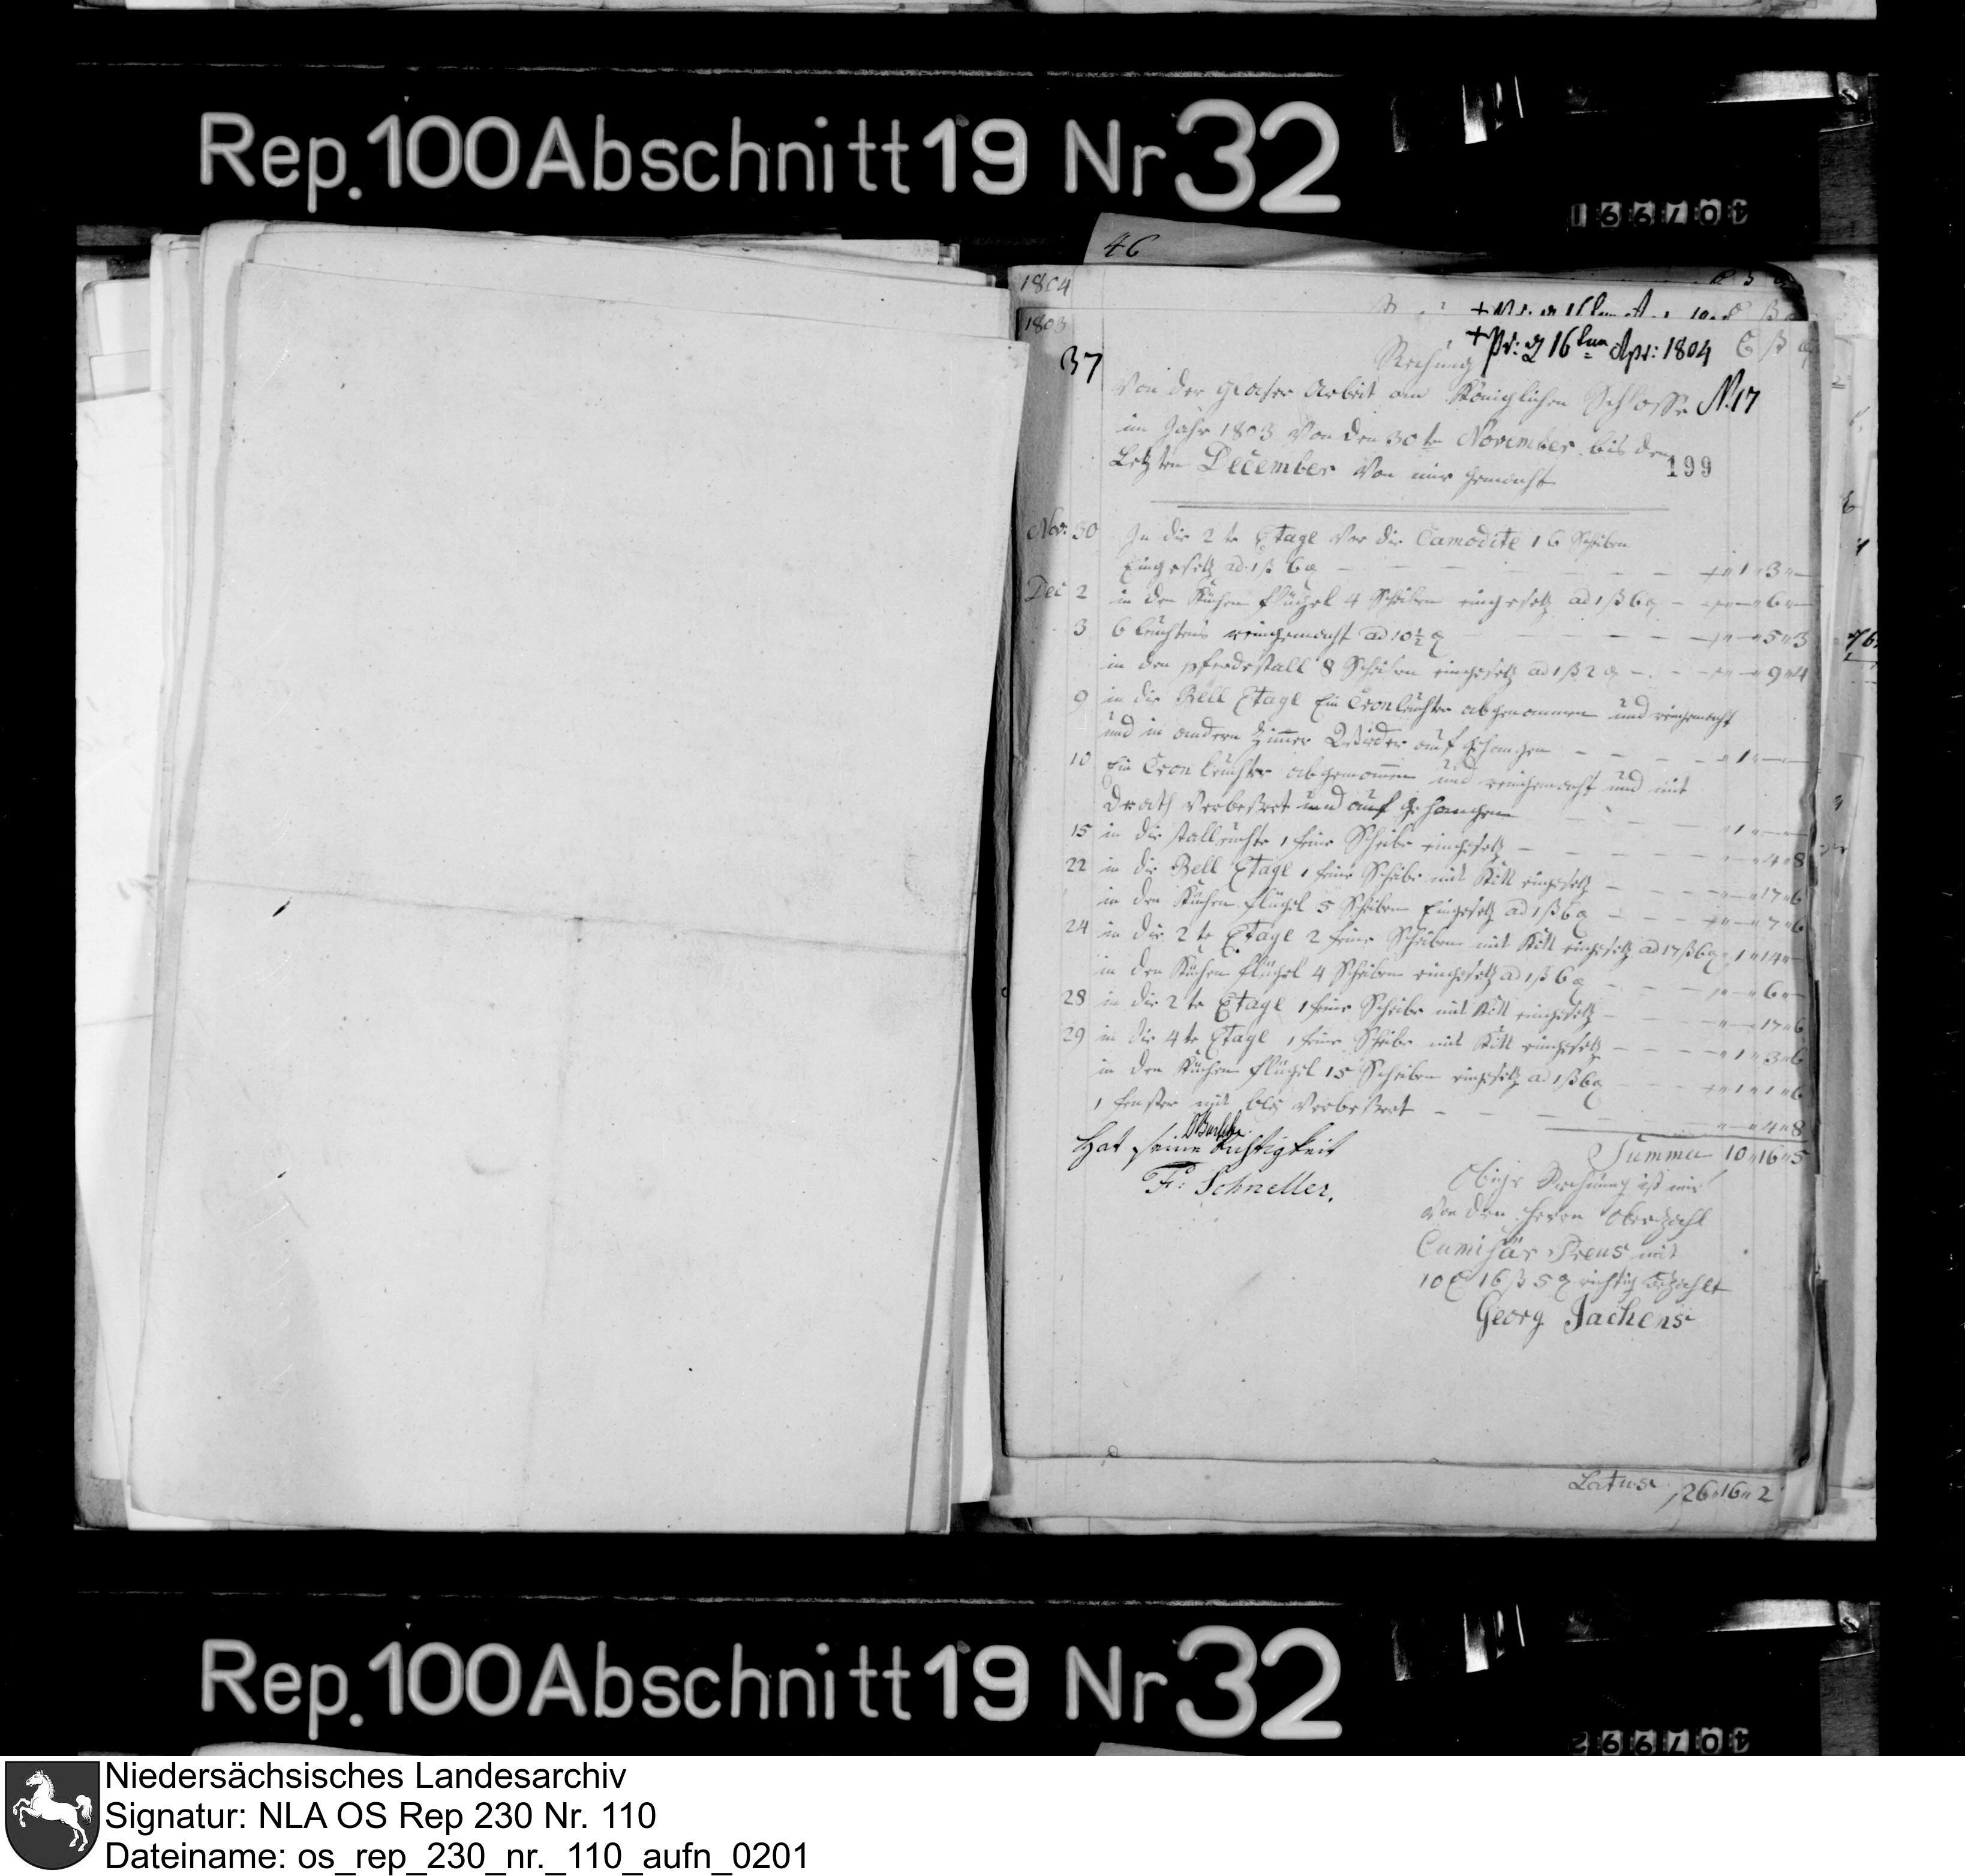 Rep. 100 Abschnitt 19 Nr 32
46
1804
1803
+ Pr: d 16ten Apr: 1804
37
Rechnung
Von der glaser Arbeit am Königlichen Schlosse N. 17
im Jahr 1803 Von den 30te November bis den
Letzten December Von mir gemacht
199
Nov: 30 In die 2te Etage Vor die Camodite 16 Scheiben
Eingesetz ad 1 ß 6 ₰ — 1 „ 3 „ —
Dec 2 in den Küchen flügel 4 Scheiben eingesetz ad 1 ß 6 ₰ — „ 6 „ —
3 6 leuchtens reingemacht ad 10½ ₰ — „ 5 „ 3
in den pferdestall 8 Scheiben eingesetz ad 1 ß 2 ₰ — „ 9 „ 4
9 in die Bell Etage Ein Cronleuchter abgenommen und reingemacht
und in andern Zimer Wieder auf gehangen — 1 „ —
10 Ein Cron leuchter abgenomen und reingemacht und mit
Drath Verbeßert und auf gehangen — 1 „ —
15 in die stalleuchte 1 feine Scheibe eingesetz — „ 4 „ 8
22 in die Bell Etage 1 feine Scheibe mit Kitt eingesetz — „ 17 „ 6
in den Küchen flügel 5 Scheiben Eingesetz ad 1 ß 6 ₰ — „ 7 „ 6
24 in die 2te Etage 2 feine Scheiben mit Kitt eingesetz ad 17 ß 6 ₰ „ 1 „ 14 „ —
in den Küchen flügel 4 Scheiben eingesetz ad 1 ß 6 ₰ — „ 6 „ —
28 in die 2te Etage 1 feine Scheibe mit Kitt eingesetz — „ 17 „ 6
29 in die 4te Etage 1 feine Scheibe mit Kitt eingesetz — „ 1 „ 3 „ 6
in den Küchen flügel 15 Scheiben eingesetz ad 1 ß 6 ₰ — 1 „ 1 „ 6
1 fenster mit bley Verbeßert — „ 4 „ 8
Summa 10 „ 16 „ 5
Hat seine Richtigkeit
F: Schneller.
Obige Rechnung ist mir
Von den Herrn Oberzahl
Cumisär Preus mit
10 ₢ 16 ß 5 ₰ richtig bezahlt
Georg Jachens
Latus 26 „ 16 „ 2
Rep. 100 Abschnitt 19 Nr 32
Niedersächsisches Landesarchiv
Signatur: NLA OS Rep 230 Nr. 110
Dateiname: os_rep_230_nr._110_aufn_0201